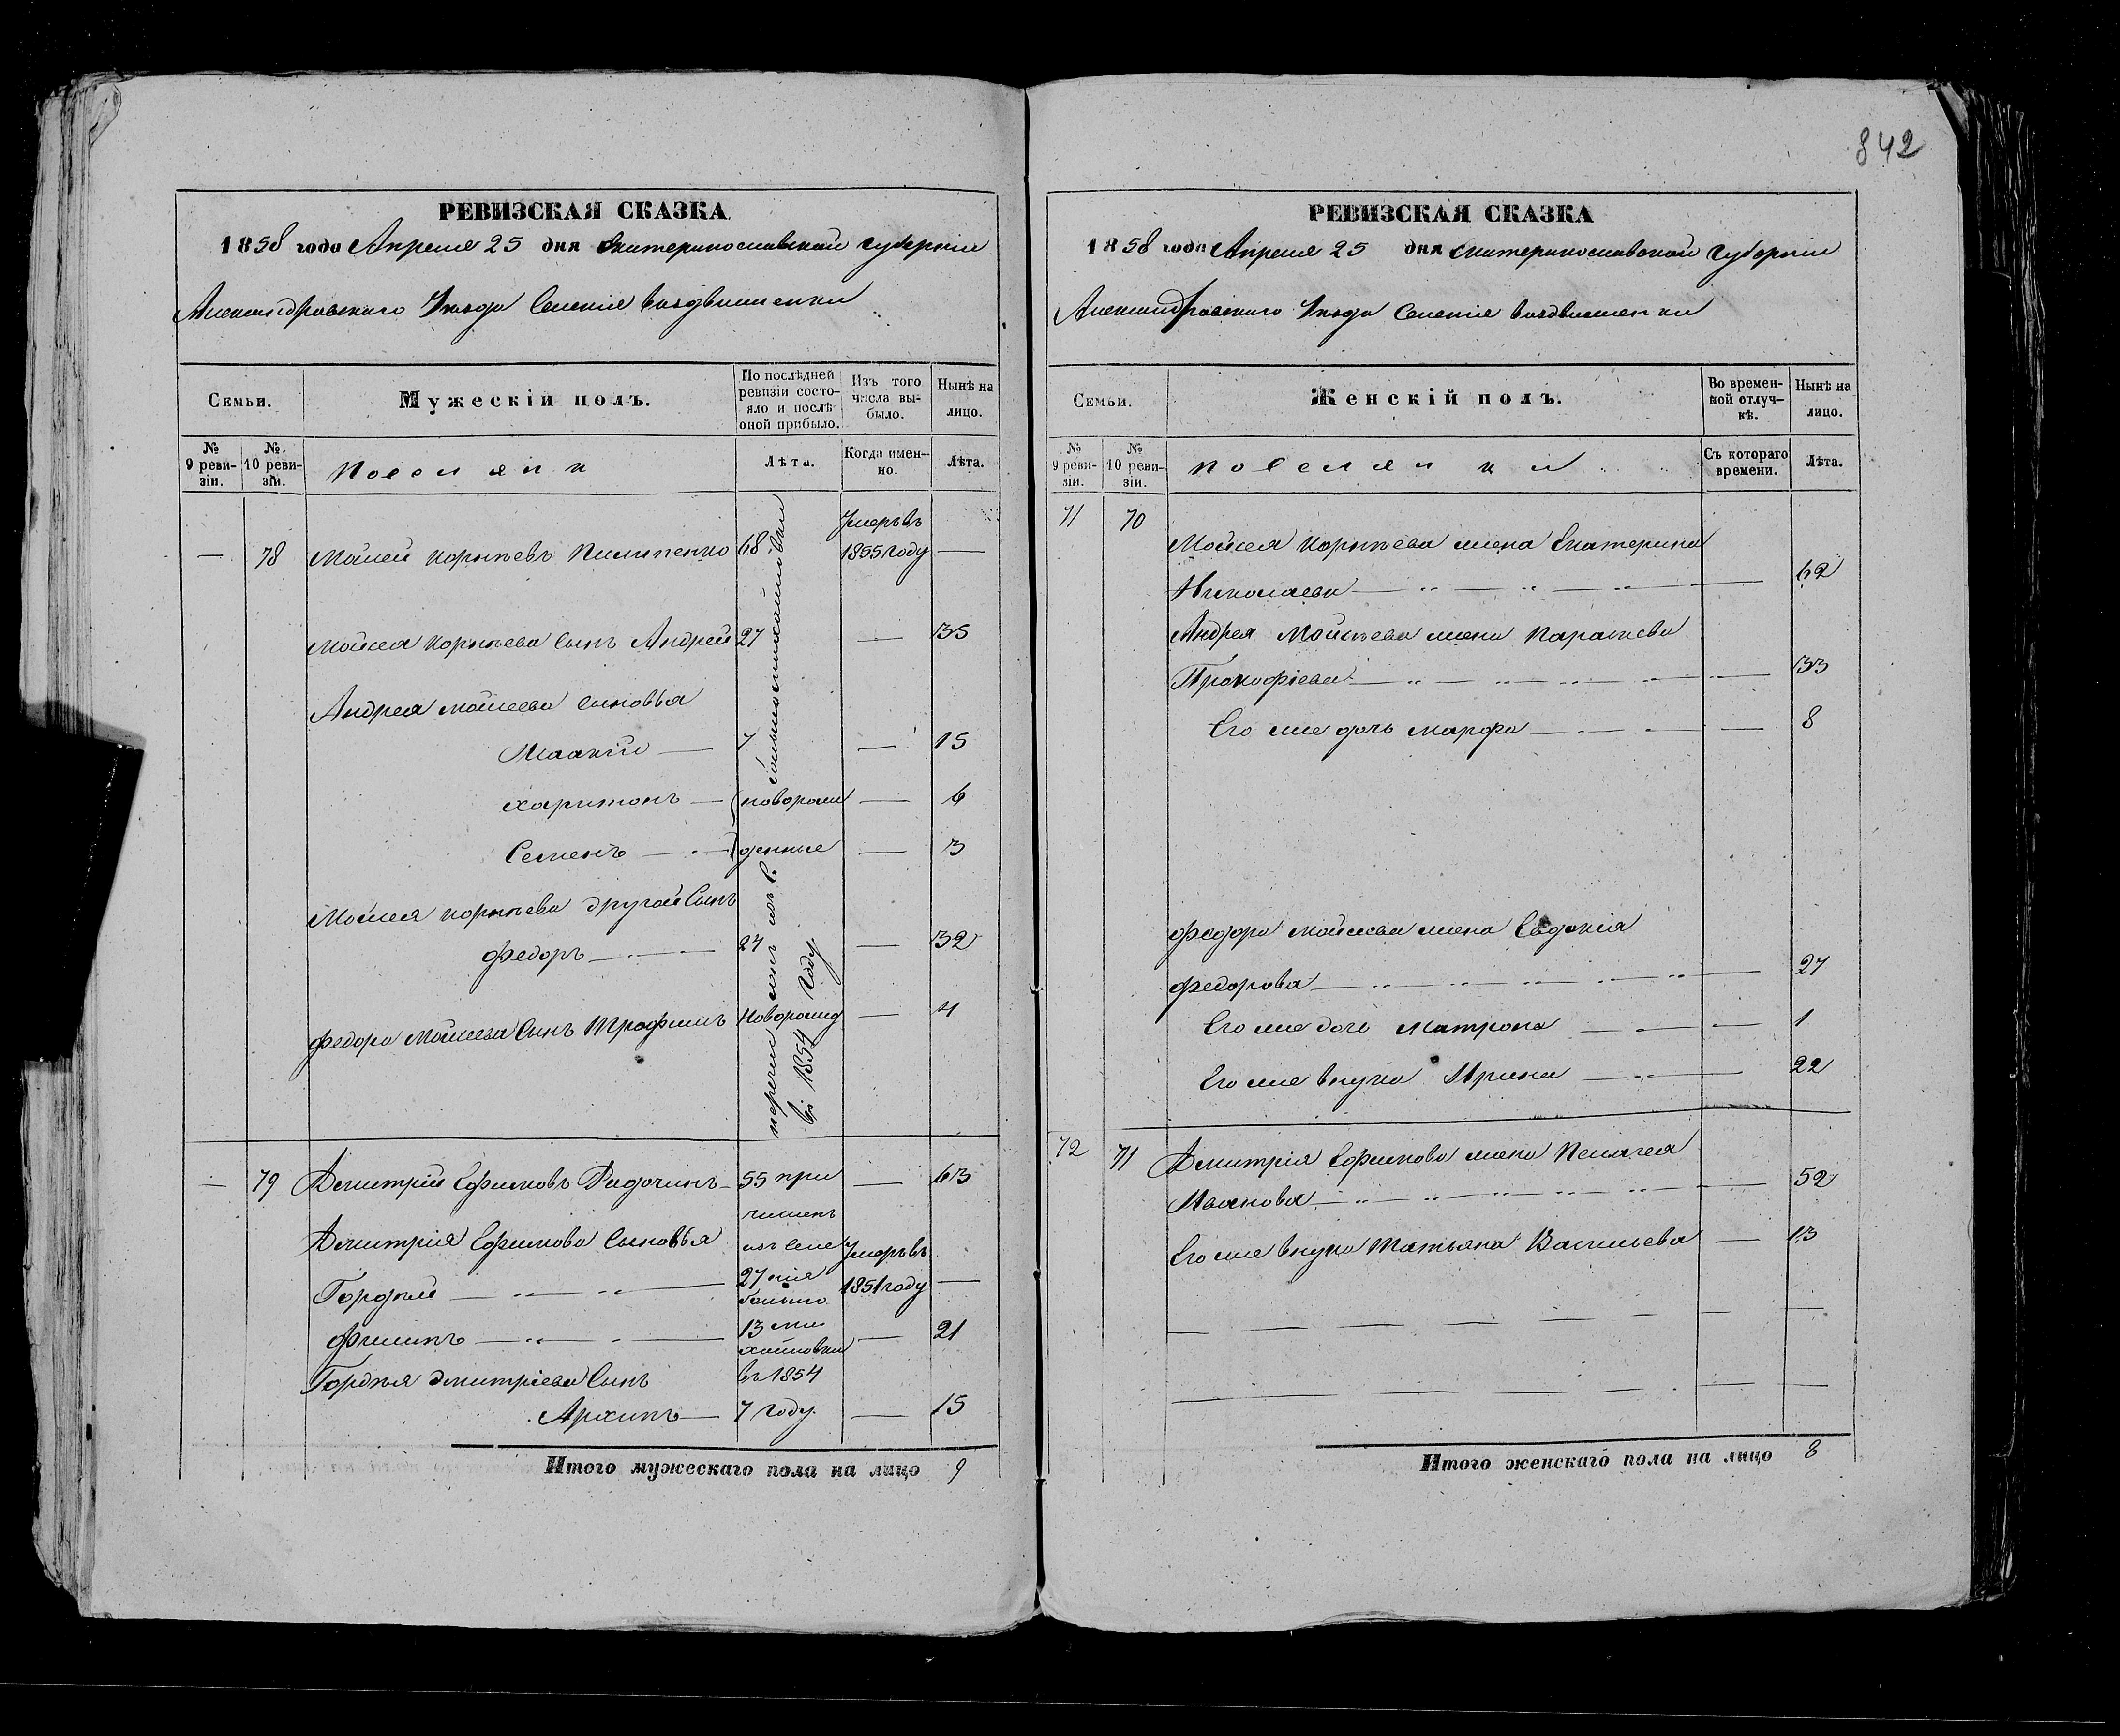 842
РЕВИЗСКАЯ СКАЗКА
1858 года Апреля 25 дня Екатеринославской губернiи
Александровскаго Уезда Селенiя Воздвиженки
Семьи.
Мужескiй полъ.
По послѣдней ревизiи состо-
яло и послѣ оной прибыло.
Изъ того числа вы-
было.
Нынѣ на лицо.
№ 9 реви-
зiи.
№ 10 реви-
зiи.
Поселяне
Лѣта.
Когда имен-
но.
Лѣта.
— 78 Моисей Корнѣевъ Пилипенко 68 Умеръ въ 1855 году —
Моисея Корнѣева Сынъ Андрей 27 — 35
Андрея Моисеева Сыновья
Иоакiй — 7 — 15
Харитонъ — новорож — 6
Семенъ — денные — 3
Моисея Корнѣева другой Сынъ
Федоръ — 24 — 32
Федора Моисеева Сынъ Трофимъ новорожд — 4
въ 1854 году
— 79 Дмитрiй Ефимовъ 55 при — 63
численъ
Дмитрiя Ефимова Сыновья изъ Селе
Гордѣй — 27 нiя Умеръ въ 1851 году —
больше
Филипъ — 13 ми — 21
хайловки
Гордѣя Дмитрiева Сынъ въ 1854
Архипъ — 7 году. — 15
Итого мужескаго пола на лицо 9
РЕВИЗСКАЯ СКАЗКА
1858 года Апреля 25 дня Екатеринославской Губернiи
Александровскаго Уезда Селенiя Воздвиженки
Семьи.
Женскiй полъ.
Во времен-
ной отлуч-
кѣ.
Нынѣ на лицо.
№ 9 реви-
зiи.
№ 10 реви-
зiи.
Поселянки
Съ котораго времени.
Лѣта.
71 70
Моисея Корнѣева жена Екатерина
Николаева — 62
Андрея Моисѣева жена Параскева
Прокофiева — 33
Его же дочь Марфа — 8
Федора Моисеева жена Евдокiя
Федорова — 27
Его же дочь Матрона — 1
Его же внука Ирина — 22
72 71 Дмитрiя Ефимова жена Пелагея
Иванова — 52
Его же внука Татьяна Васильева — 13
Итого женскаго пола на лицо 8